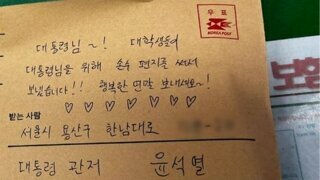 우표
KOREA POST
대통령님~! 대학생들이
대통령님을 위해 손수 편지를 써서
보냈습니다!! 행복한 연말 보내세요~!
♡ ♡ ♡ ♡ ♡ ♡ ♡
받는 사람
서울시 용산구 한남대로
대통령 관저 윤석열
보험